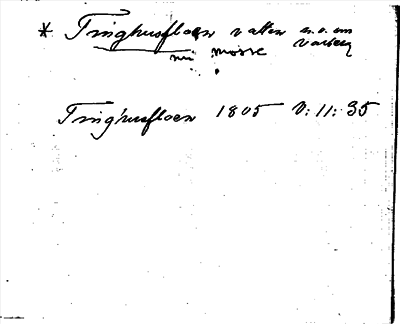 * Tinghusfloen vatten n.o. om Varberg
nu mosse
Tinghusfloen 1805 V: 11: 35